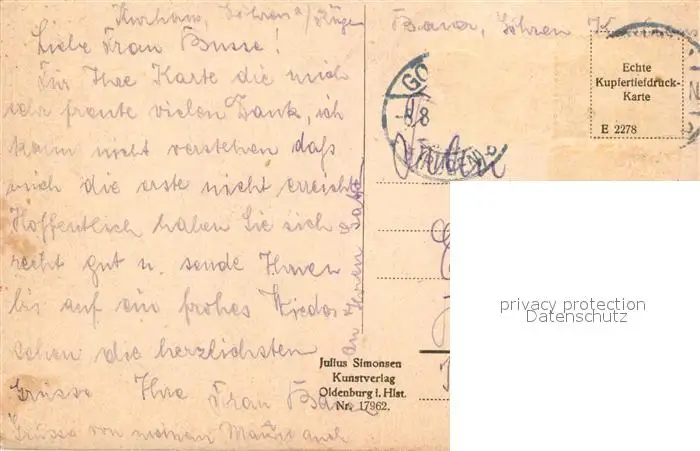 Kurhaus, Göhren a/Rügen
Liebe Frau Busse!
Für Ihre Karte die mich
sehr freute vielen Dank, ich
kann nicht verstehen daß
mich die erste nicht erreicht
Hoffentlich haben Sie sich
recht gut u. sende Ihnen
bis auf ein frohes Wieder-
sehen die herzlichsten
Grüsse Ihre
Frau Bauer
Grüsse von meinem Mann auch
an Ihren
Bauer, Göhren
GÖ
-8.8
(RÜGEN) b
Echte
Kupfertiefdruck-
Karte
E 2278
privacy protection
Datenschutz
Julius Simonsen
Kunstverlag
Oldenburg i. Hlst.
Nr. 17962.